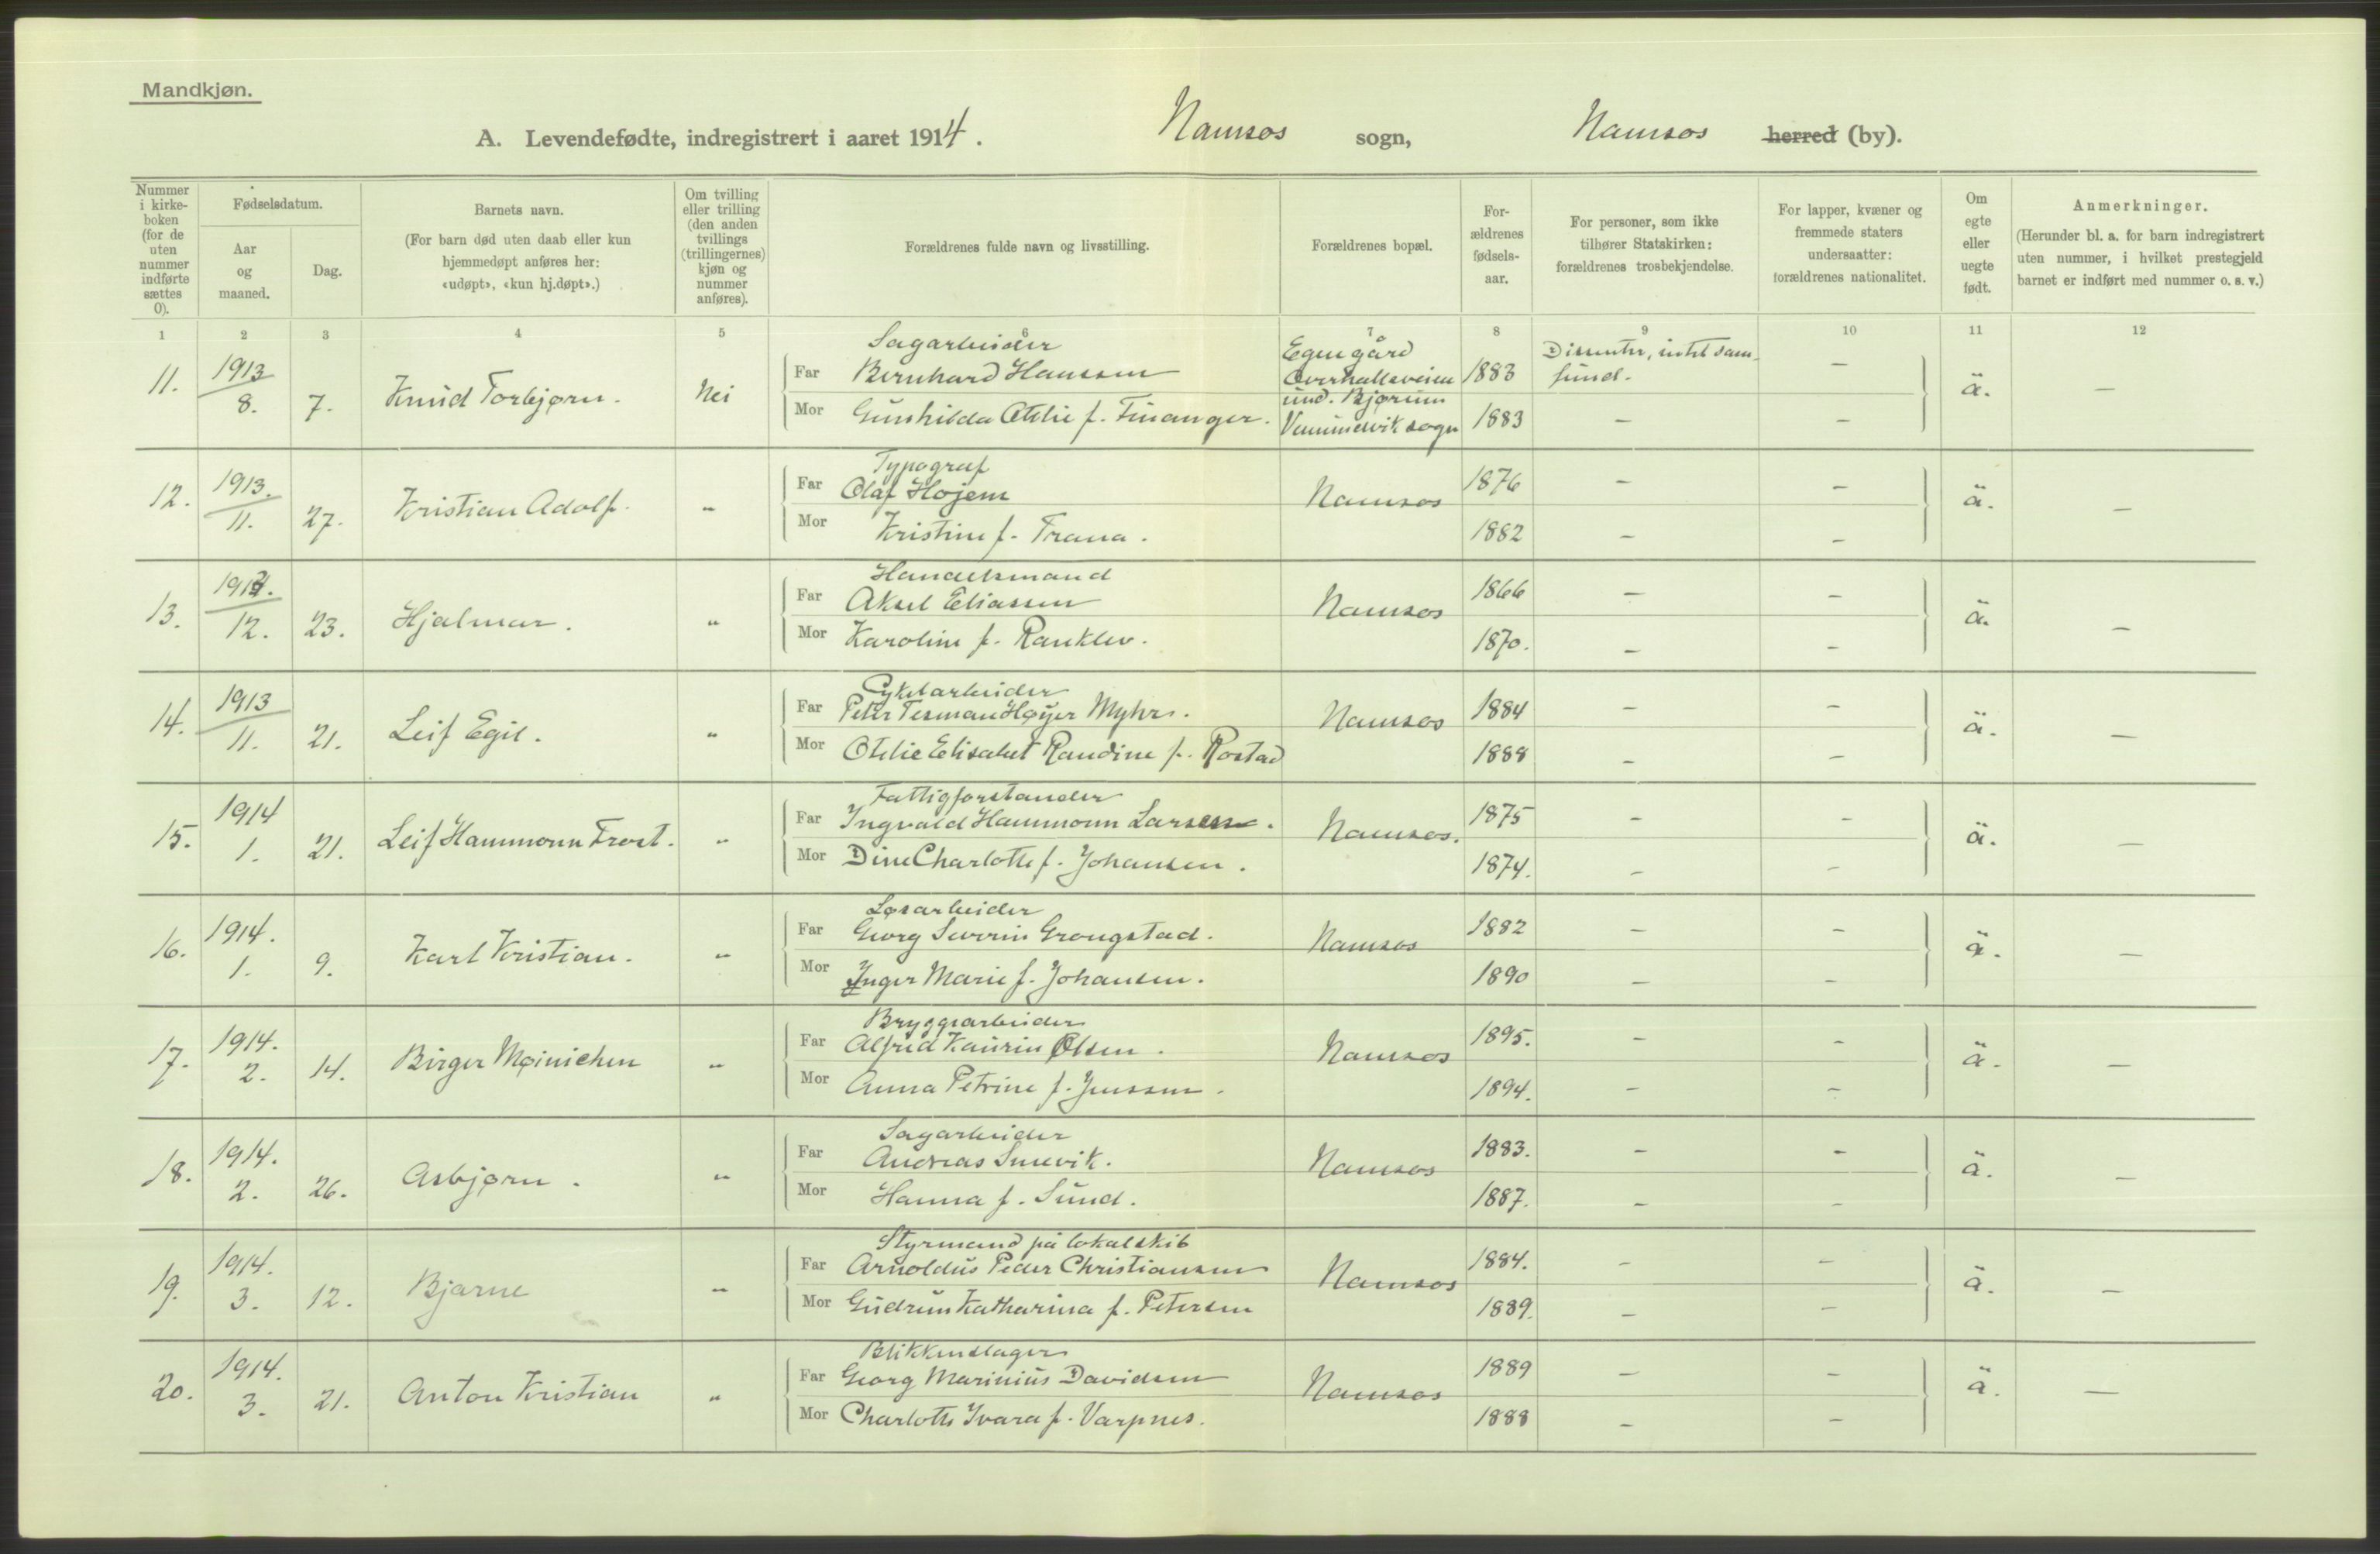 Mandkjøn.
A. Levendefødte, indregistrert i aaret 1914. Namsos sogn, Namsos herred (by).
Nummer i kirke-boken (for de uten nummer indførte sættes 0).
Fødselsdatum.
Aar og maaned.
Dag.
Barnets navn.
(For barn død uten daab eller kun hjemmedøpt anføres her: «udøpt», «kun hj.døpt».)
Om tvilling eller trilling (den anden tvillings (trillingernes) kjøn og nummer anføres).
Forældrenes fulde navn og livsstilling.
Forældrenes bopæl.
For-ældrenes fødsels-aar.
For personer, som ikke tilhører Statskirken: forældrenes trosbekjendelse.
For lapper, kvæner og fremmede staters undersaatter: forældrenes nationalitet.
Om egte eller uegte født.
Anmerkninger.
(Herunder bl. a. for barn indregistrert uten nummer, i hvilket prestegjeld barnet er indført med nummer o. s. v.)
1 2 3 4 5 6 7 8 9 10 11 12
Sagarbeider
11. 1913 8. 7. Knud Torbjørn. Nei
Far Bernhard Hanssen 1883 Dissenter, intet samfund. —
Mor Gunhilda Otelie f. Finanger. 1883 — —
Egen gård Overhallsveien und. Bjørum Vemundvik sogn
ä. —
Typograf
12. 1913. 11. 27. Kristian Adolf. „
Far Olaf Højem Namsos 1876 — —
Mor Kristine f. Frana. 1882 — —
ä. —
Handelsmand
13. 12. 23. Hjalmar. „
Far Aksel Eliassen Namsos 1866 — —
Mor Karoline f. Ranklev. 1870. — —
ä. —
Cykelarbeider
14. 1913 11. 21. Leif Egil. „
Far Peter Tesman Høyer Myhre. Namsos 1884 — —
Mor Otelie Elisabet Randine f. Rostad 1888 — —
ä. —
Fattigforstander
15. 1914 1. 21. Leif Hammonn Frost. „
Far Ingvald Hammonn Larsen. Namsos. 1875 — —
Mor Dine Charlotte f. Johansen. 1874. — —
ä. —
Løsarbeider
16. 1914. 1. 9. Karl Kristian. „
Far Georg Severin Grongstad. Namsos 1882 — —
Mor Inger Marie f. Johansen. 1890 — —
ä. —
Bryggearbeider
17. 1914. 2. 14. Birger Møinichen „
Far Alfred Kaurin Olsen. Namsos 1895. — —
Mor Anna Petrine f. Jenssen. 1894. — —
ä. —
Sagarbeider
18. 1914. 2. 26. Asbjørn. „
Far Andreas Smevik. Namsos 1883. — —
Mor Hanna f. Sund. 1887. — —
ä. —
Styrmand på lokalskib
19. 1914. 3. 12. Bjarne „
Far Arnoldus Peder Christiansen Namsos 1884. — —
Mor Gudrun Katharina f. Petersen 1889. — —
ä. —
Blikkenslager
20. 1914. 3. 21. Anton Kristian „
Far Georg Marinius Davidsen Namsos 1889 — —
Mor Charlotte Ivara f. Varpnes. 1888 — —
ä. —